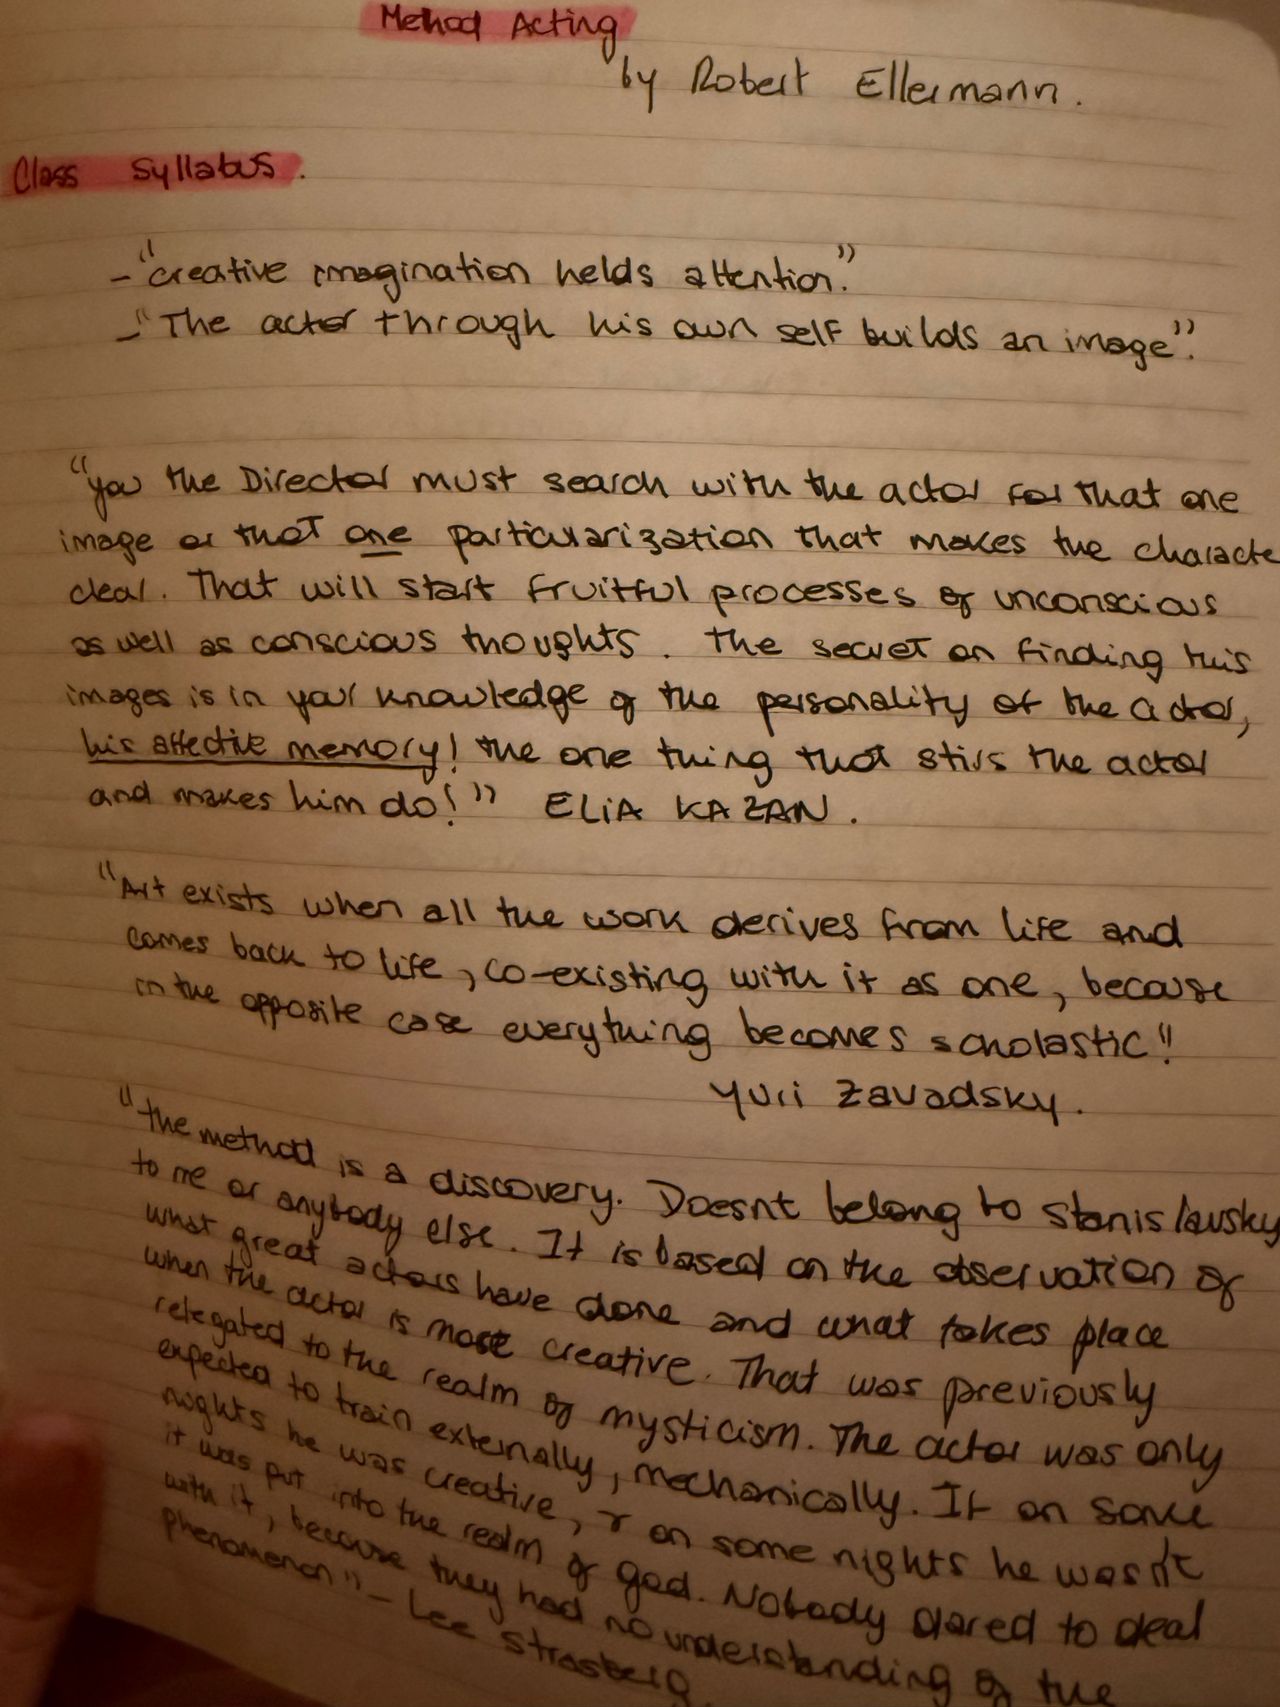 Method Acting
by Robert Ellermann.
Class Syllabus.
- "creative imagination helds attention."
- "The actor through his own self builds an image".
"you the Director must search with the actor for that one
image or that one particularization that makes the characte
clear. That will start fruitful processes of unconscious
as well as conscious thoughts. The secret on finding this
images is in your knowledge of the personality of the actor,
his affective memory! the one thing that stirs the actor
and makes him do!" ELIA KAZAN.
"Art exists when all the work derives from life and
comes back to life, co-existing with it as one, because
in the opposite case everything becomes scholastic"!
Yuri Zavadsky.
"the method is a discovery. Doesnt belong to Stanislavsky
to me or anybody else. It is based on the observation of
what great actors have done and what takes place
when the actor is most creative. That was previously
relegated to the realm of mysticism. The actor was only
expected to train externally, mechanically. If on some
nights he was creative, & on some nights he wasn't
it was put into the realm of god. Nobody dared to deal
with it, because they had no understanding of the
phenomenon" - Lee Strasberg